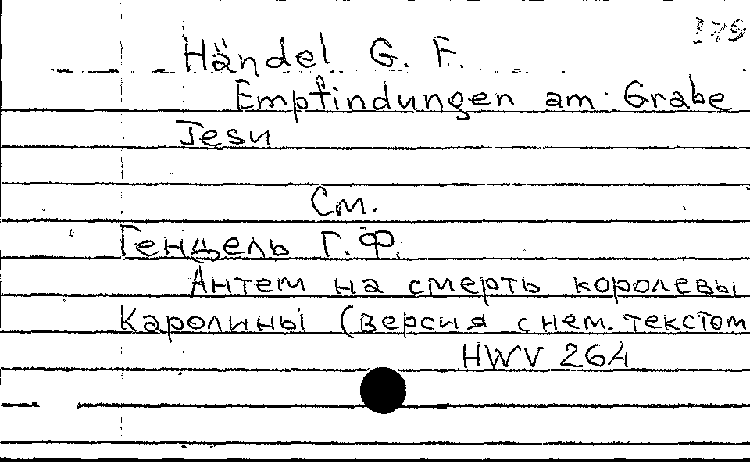 179
Händel G. F.
Empfindungen am Grabe
Jesu
См.
Гендель Г. Ф.
Антем на смерть королевы
Каролины (версия с нем. текстом
HWV 264